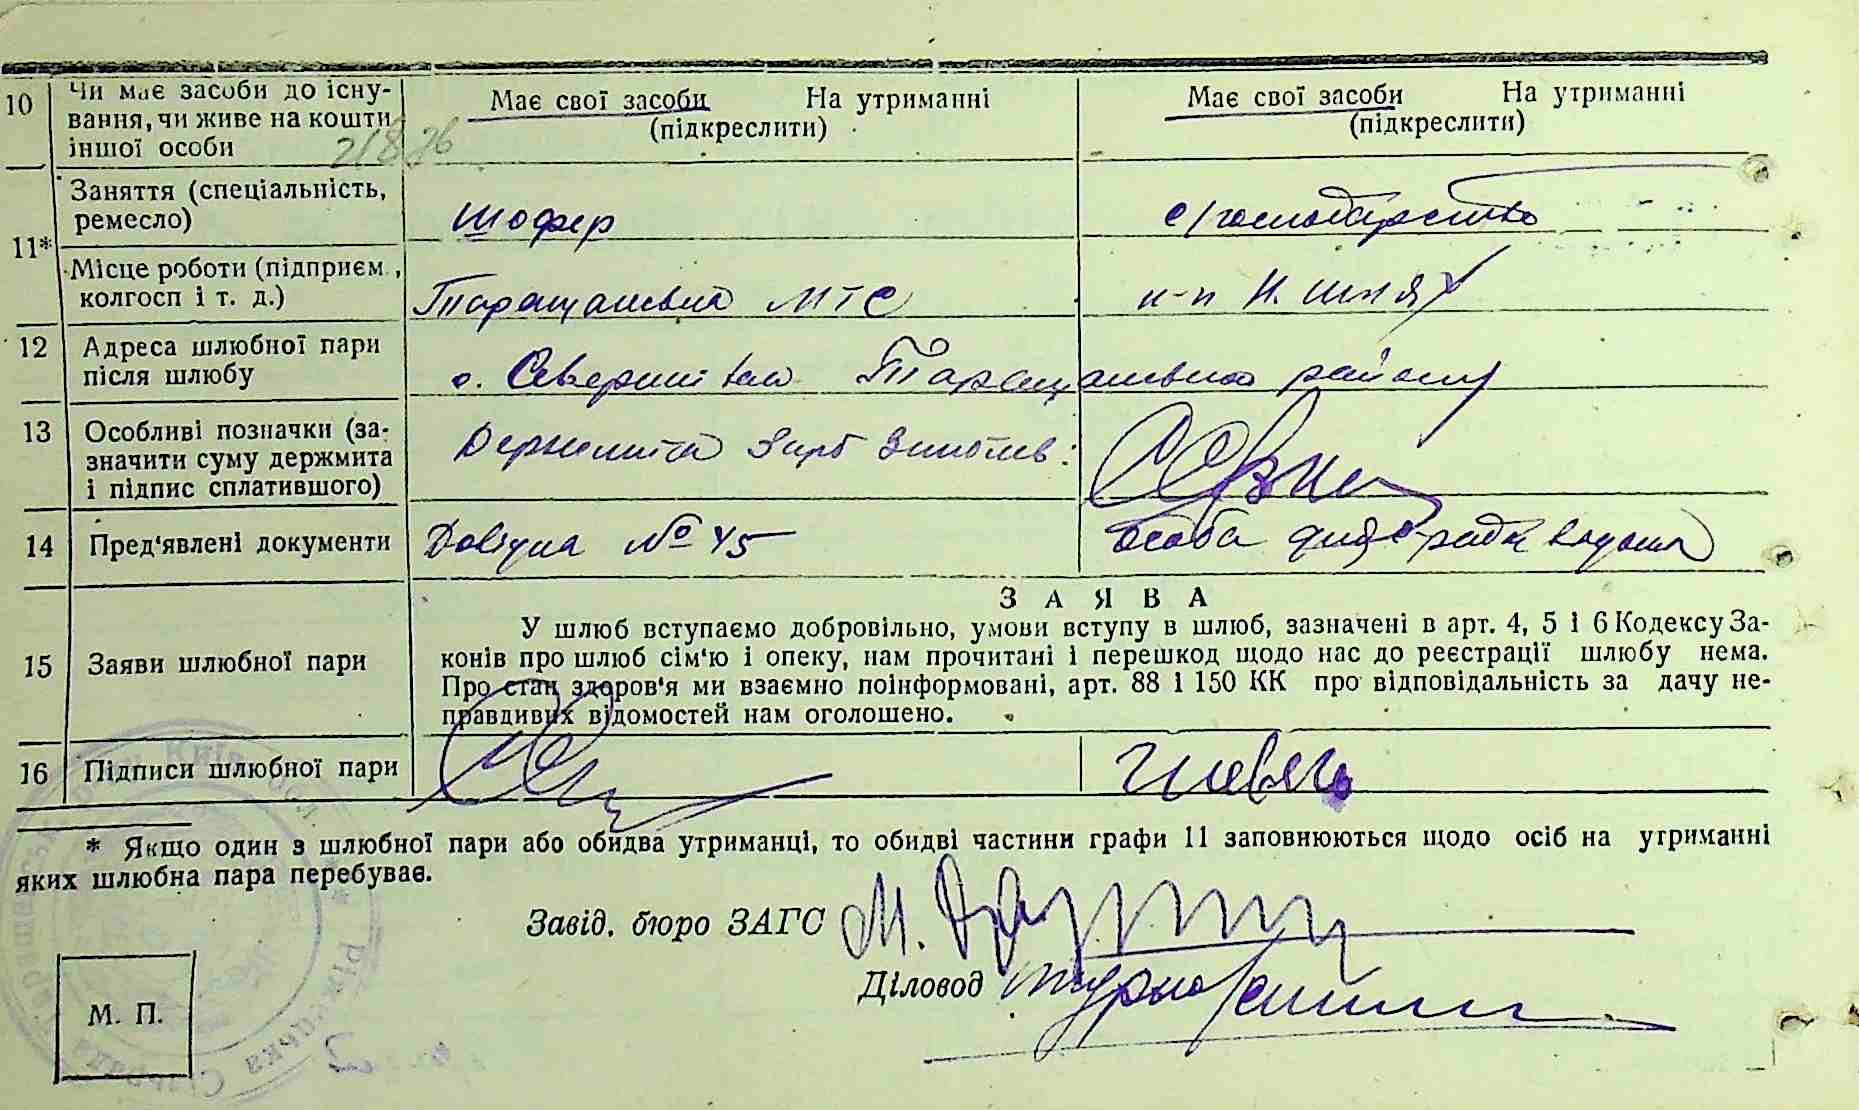 10 Чи має засоби до існу-
вання, чи живе на кошти
іншої особи
Має свої засоби На утриманні
(підкреслити)
Має свої засоби На утриманні
(підкреслити)
11*
Заняття (спеціальність,
ремесло)
шофер
с/господарство
Місце роботи (підприєм.,
колгосп і т. д.)
Таращанська МТС
к-п Н. шлях
12 Адреса шлюбної пари
після шлюбу
с. Северинівка Таращанського району
13 Особливі позначки (за-
значити суму держмита
і підпис сплатившого)
Держмита 3 крб
14 Пред'явлені документи
Довідка № 45
особа
15 Заяви шлюбної пари
ЗАЯВА
У шлюб вступаємо добровільно, умови вступу в шлюб, зазначені в арт. 4, 5 і 6 Кодексу За-
конів про шлюб сім'ю і опеку, нам прочитані і перешкод щодо нас до реєстрації шлюбу нема.
Про стан здоров'я ми взаємно поінформовані, арт. 88 і 150 КК про відповідальність за дачу не-
правдивих відомостей нам оголошено.
16 Підписи шлюбної пари
* Якщо один з шлюбної пари або обидва утриманці, то обидві частини графи 11 заповнюються щодо осіб на утриманні
яких шлюбна пара перебуває.
Завід. бюро ЗАГС
Діловод
М. П.